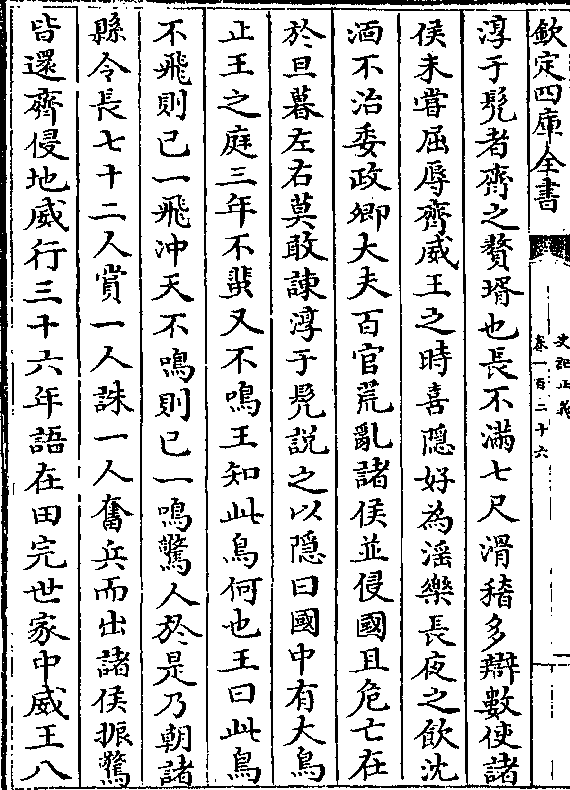 欽定四庫全書
史記正義
卷一百二十六
淳于髠者齊之贅壻也長不滿七尺滑稽多辯數使諸
侯未嘗屈辱齊威王之時喜隠好為淫樂長夜之飲沈
湎不治委政卿大夫百官荒亂諸侯並侵國且危亡在
於旦暮左右莫敢諫淳于髠説之以隠曰國中有大鳥
止王之庭三年不蜚又不鳴王知此鳥何也王曰此鳥
不飛則已一飛沖天不鳴則已一鳴驚人於是乃朝諸
縣令長七十二人賞一人誅一人奮兵而出諸侯振驚
皆還齊侵地威行三十六年語在田完世家中威王八